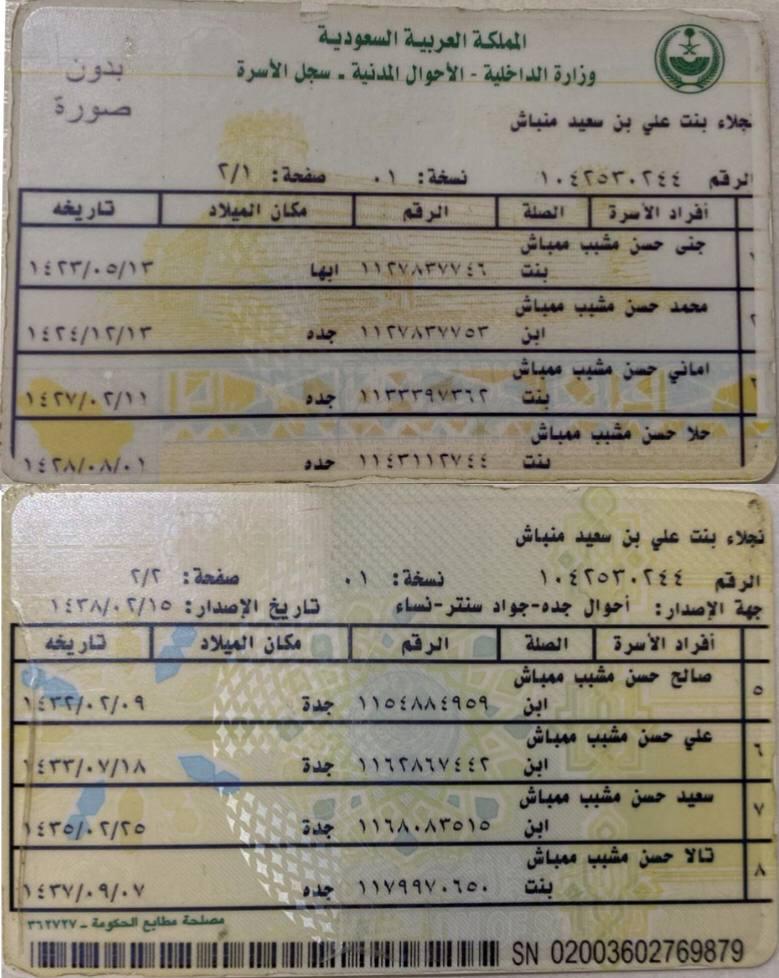 المملكة العربية السعودية
وزارة الداخلية - الأحوال المدنية - سجل الأسرة
بدون
صورة
نجلاء بنت علي بن سعيد منباش
الرقم ١٠٤٢٥٣٠٢٤٤ نسخة: ٠١ صفحة: ٢/١
أفراد الأسرة الصلة الرقم مكان الميلاد تاريخه
١ جنى حسن مشبب ممباش
بنت ١١٢٧٨٣٧٧٤٦ ابها ١٤٢٣/٠٥/١٣
٢ محمد حسن مشبب ممباش
ابن ١١٢٧٨٣٧٧٥٣ جده ١٤٢٤/١٢/١٣
٣ اماني حسن مشبب ممباش
بنت ١١٣٣٣٩٧٣٦٢ جده ١٤٢٧/٠٢/١١
حلا حسن مشبب ممباش
بنت ١١٤٣١١٢٧٤٤ جده ١٤٢٨/٠٨/٠١
نجلاء بنت علي بن سعيد منباش
الرقم ١٠٤٢٥٣٠٢٤٤ نسخة: ٠١ صفحة: ٢/٢
جهة الإصدار: أحوال جده-جواد سنتر-نساء تاريخ الإصدار: ١٤٣٨/٠٢/١٥
أفراد الأسرة الصلة الرقم مكان الميلاد تاريخه
٥ صالح حسن مشبب ممباش
ابن ١١٥٤٨٨٤٩٥٩ جدة ١٤٣٢/٠٢/٠٩
٦ علي حسن مشبب ممباش
ابن ١١٦٢٨٦٧٤٤٢ جدة ١٤٣٣/٠٧/١٨
٧ سعيد حسن مشبب ممباش
ابن ١١٦٨٠٨٣٥١٥ جدة ١٤٣٥/٠٢/٢٥
٨ تالا حسن مشبب ممباش
بنت ١١٧٩٩٧٠٦٥٠ جده ١٤٣٧/٠٩/٠٧
مصلحة مطابع الحكومة - ٣٦٢٧٢٧
SN 02003602769879